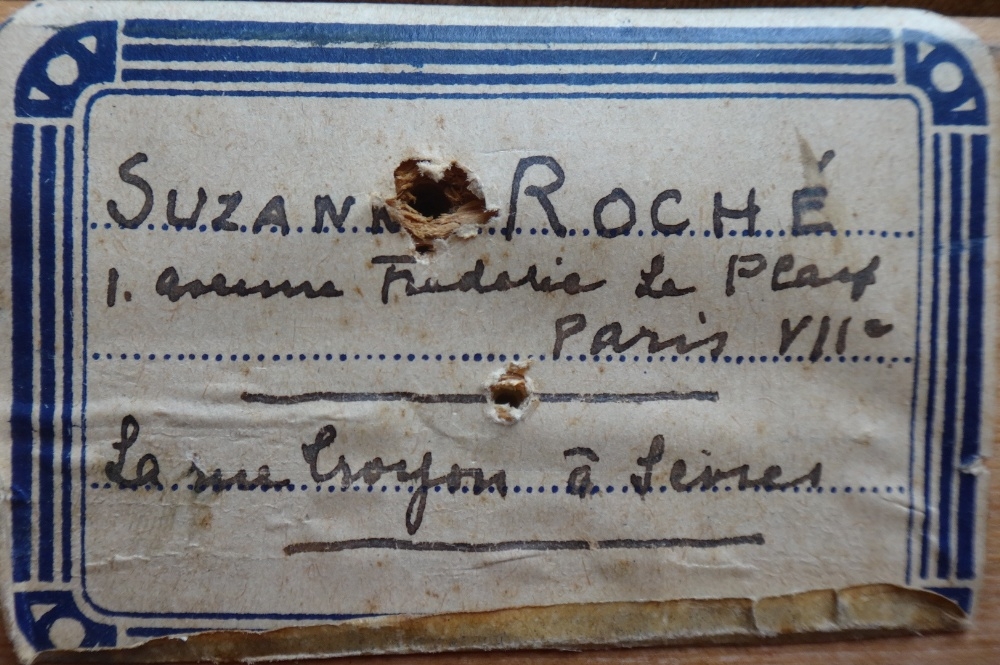 SUZANN ROCHÉ
1. avenue Frédéric Le Play
Paris VIIe
La rue Troyon à Sèvres